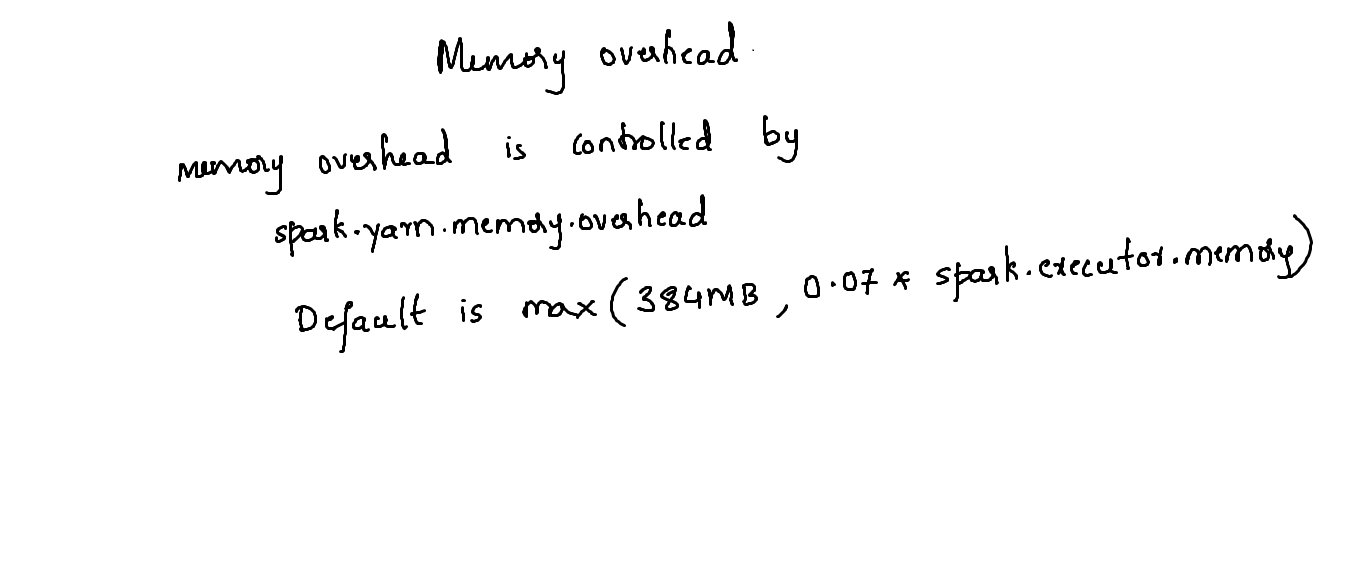 Memory overhead
memory overhead is controlled by
spark.yarn.memory.overhead
Default is max (384MB, 0.07 * spark.executor.memory)